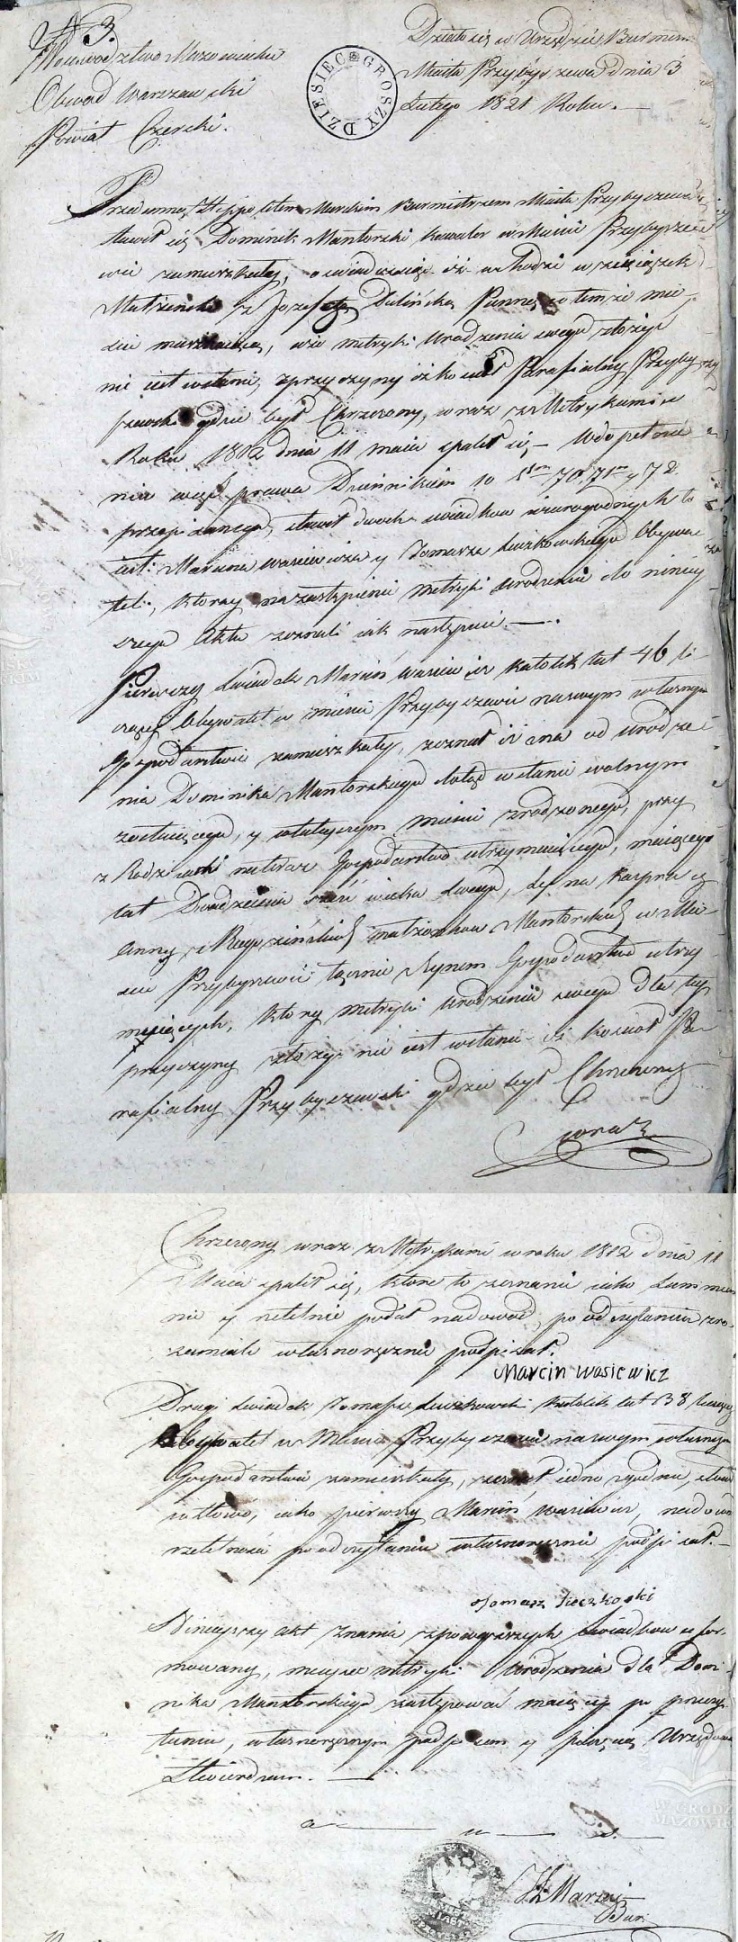 № 3.
Woiewodztwo Mazowieckie
Obwod Warszawski
Powiat Czerski.
DZIESIĘC GROSZY
Działo się w Urzędzie Burmis
Miasta Przybyszewa dnia 3
Lutego 1821 Roku.
Przedemną Hippolitem Marskim Burmistrzem Miasta Przybyszewa
stawił się Dominik Mantorski Kawaler w Mieście Przybysze
wie zamieszkały, oswiadczaiąc iż wchodzi w związek
Małżeński z Jozefą Dulińską Panną w temże mie
ście mieszkaiącą, wie metryki Urodzenia swego złożyć
nie iest wstanie, zprzyczyny iż kościoł Parafialny Przyby
szewski gdzie był Chrzczony, wraz z Metrykami w
Roku 1812 dnia 11 maia spalił się, – W dopełnie
nie więc prawa Dziennikiem 10 70. 71 y 72
przepisanego, stawił dwoch swiadkow wiarogodnych to
iest: Marcina Wasiewicza y Tomasza Łuszkowskiego Obywa
teli, ktorzy na zastąpienie metryki urodzenia do niniey
szego Aktu zeznali iak następuie. —
Pierwszy Swiadek Marcin Wasiewicz Katolik lat 46 li
czący Obywatel w mieście Przybyszewie na swym własnym
Gospodarstwie zamieszkały, zeznał iż zna od urodze
nia Dominika Mantorskiego dotąd w stanie wolnym
zostaiącego, y w tuteyszym mieście zrodzonego, przy
z Rodzicach teraz Gospodarstwo utrzymuiącego, maiącego
lat Dwadzieścia sześć wieku swego, Syna Kacpra y
Anny z Rogozińskich małżonkow Mantorskich w Mie
ście Przybyszewie łącznie z Synem Gospodarstwo utrzy
muiących, ktory metryki urodzenia swego dla tey
przyczyny złożyć nie iest wstanie iż Kościoł Pa
rafialny Przybyszewski gdzie był Chrzczony
wraz
Chrzczony wraz z Metrykami w roku 1812 dnia 11
Maia spalił się, ktore to zeznanie iako Summien
nie y rzetelnie podał na dowod, po odczytaniu zro
zumiale własnoręcznie podpisał.
Marcin Wasiewicz
Drugi Swiadek Tomasz Łuszkowski Katolik lat 38 liczący
Obywatel w Mieście Przybyszewie na swym własnym
Gospodarstwie zamieszkały, zeznał iedno zgodnie, słowo
w słowo, iako pierwszy Marcin Wasiewicz, na dowod
rzetelności po odczytaniu własnoręcznie podpisał. —
Tomasz
Ninieyszy akt znania z powyższych Swiadkow ufor
mowany, mieysce metryki Urodzenia dla Domi
nika Mantorskiego zastępować maiący po przeczy
taniu, własnoręcznym podpisem y pieczęcią Urzędową
Stwierdzam. —
Marski
Bur: